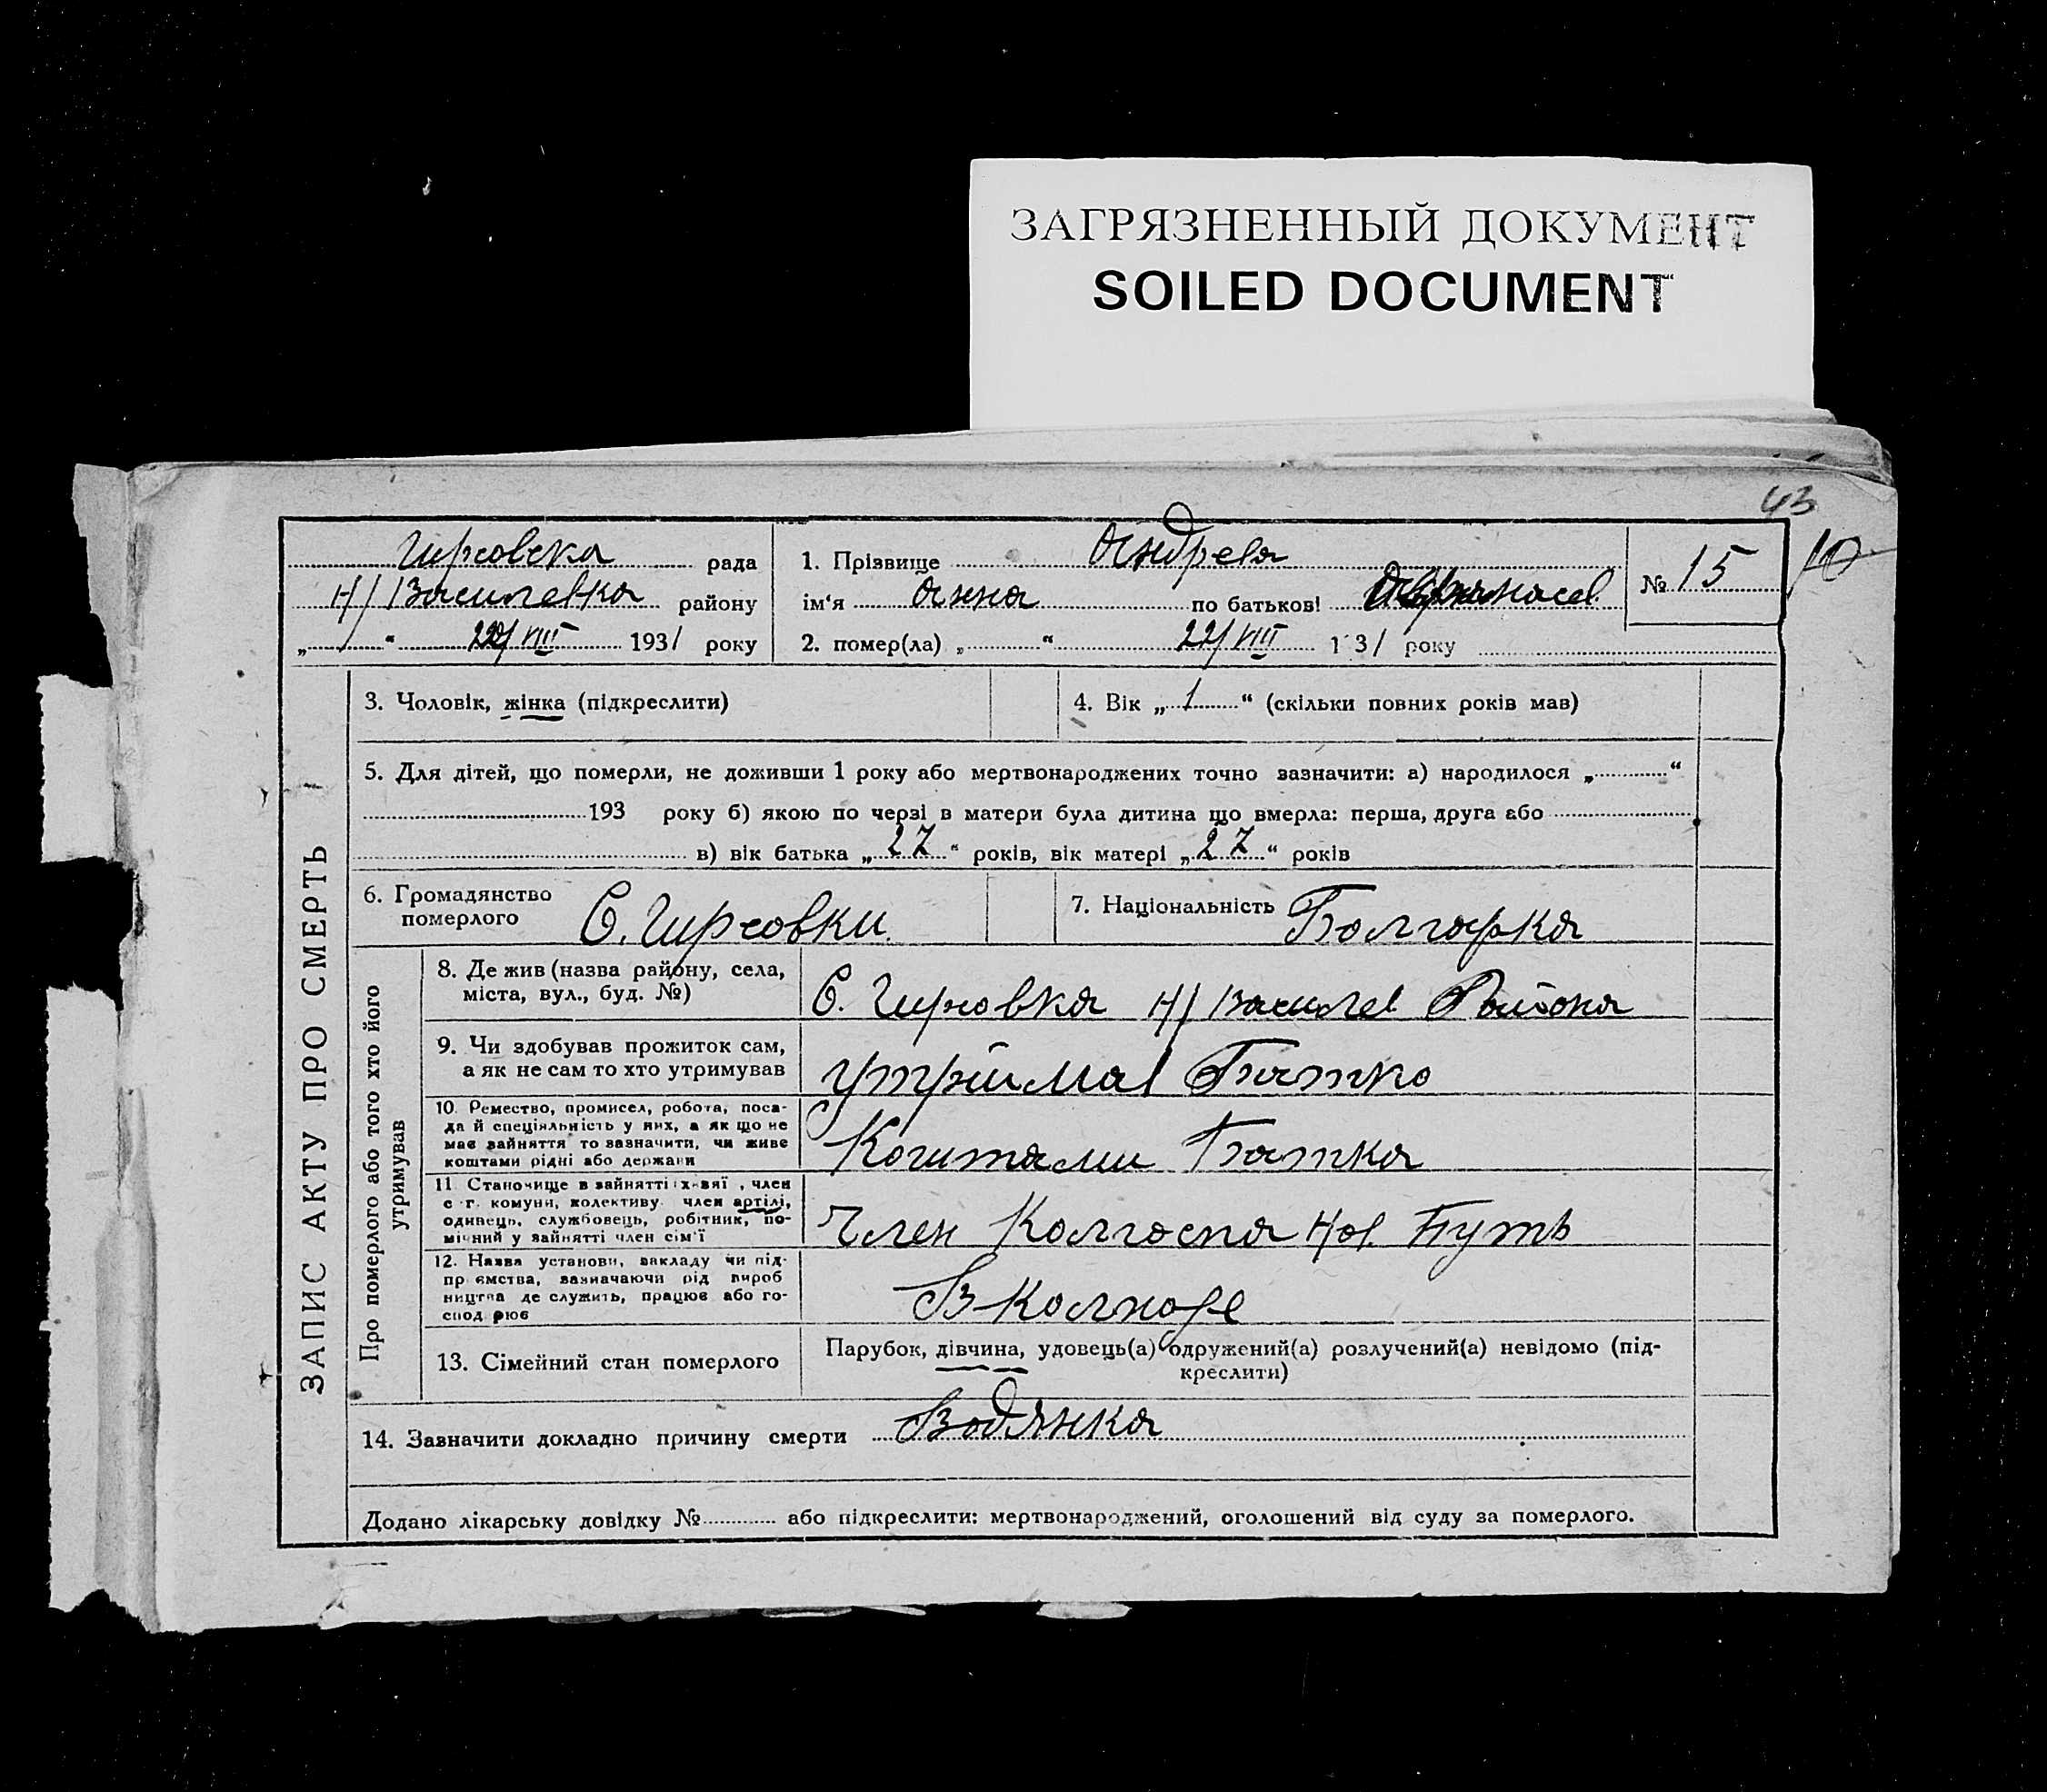 ЗАГРЯЗНЕННЫЙ ДОКУМЕНТ
SOILED DOCUMENT
43
Гирсовска рада
Н/Василевка району
„ “ 22/VIII 1931 року
1. Прізвище Андрева
ім‘я Анна по батькові
2. помер(ла) „ “ 22/VIII 1 31 року
№ 15
10
ЗАПИС АКТУ ПРО СМЕРТЬ
3. Чоловік, жінка (підкреслити)
4. Вік „ 1 “ (скільки повних років мав)
5. Для дітей, що померли, не доживши 1 року або мертвонароджених точно зазначити: а) народилося „ “
193 року б) якою по черзі в матери була дитина що вмерла: перша, друга або
в) вік батька „ 27 “ років, вік матері „ 27 “ років
6. Громадянство
померлого
С. Гирсовки
7. Національність Болгарка
Про померлого або того хто його
утримував
8. Де жив (назва району, села,
міста, вул., буд. №)
С. Гирсовка Н/Василев Района
9. Чи здобував прожиток сам,
а як не сам то хто утримував
утрймав Батко
10. Ремество, промисел, робота, поса-
да й спеціяльність у них, а як що не
має зайняття то зазначити, чи живе
коштами рідні або держави
Коштами Батка
11 Становище в зайнятті , член
с г. комуни, колективу член артілі,
одивець, службовець, робітник, по-
мічний у зайнятті член сім'ї
Член Колгоспа Нов. Путь
12. Назва установи, закладу чи під-
пр ємства, зазначаючи рід вироб
ництва де служить, працює або го-
спод рює
В
13. Сімейний стан померлого
Парубок, дівчина, удовець(а) одружений(а) розлучений(а) невідомо (під-
креслити)
14. Зазначити докладно причину смерти Водянка
Додано лікарську довідку № або підкреслити: мертвонароджений, оголошений від суду за померлого.